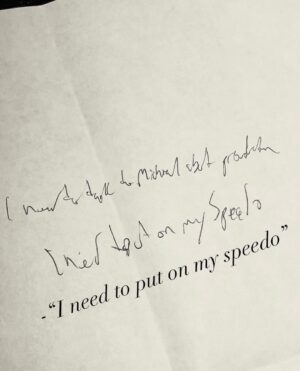 I need to talk to Michael about production
I need to put on my Speedo
-“I need to put on my speedo”